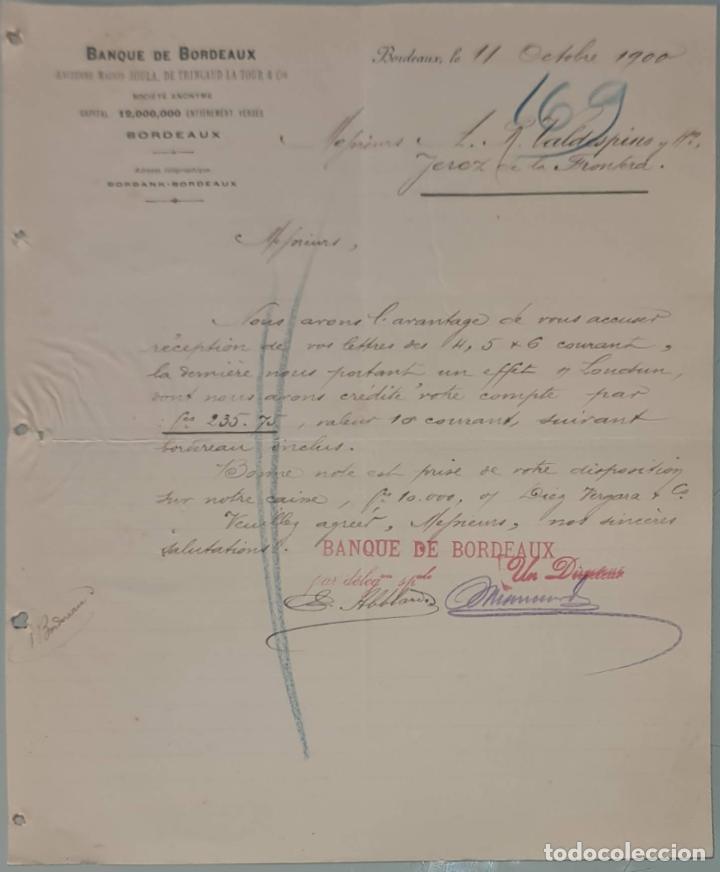 BANQUE DE BORDEAUX
ANCIENNE MAISON SOULA, DE TRINCAUD LA TOUR & Cie
SOCIÉTÉ ANONYME
CAPITAL 12,000,000 ENTIÈREMENT VERSÉS
BORDEAUX
Adresse télégraphique
BORBANK-BORDEAUX
Bordeaux, le 11 Octobre 1900
169
Messieurs A. R. Valdespino y Hno,
Jerez de la Frontera.
Messieurs,
Nous avons l'avantage de vous accuser
réception de vos lettres des 4, 5 & 6 courant,
la dernière nous portant un effet s/ Loudun,
dont nous avons crédité votre compte par
: Fcs 235.75, valeur 18 courant, suivant
bordereau inclus.
Bonne note est prise de votre disposition
sur notre caisse, Fcs 10.000, o/ Diez Vergara & Co
Veuillez agréer, Messieurs, nos sincères
salutations.
BANQUE DE BORDEAUX
par délegon spale
Un Directeur
1 Bordereau
todocoleccion.net